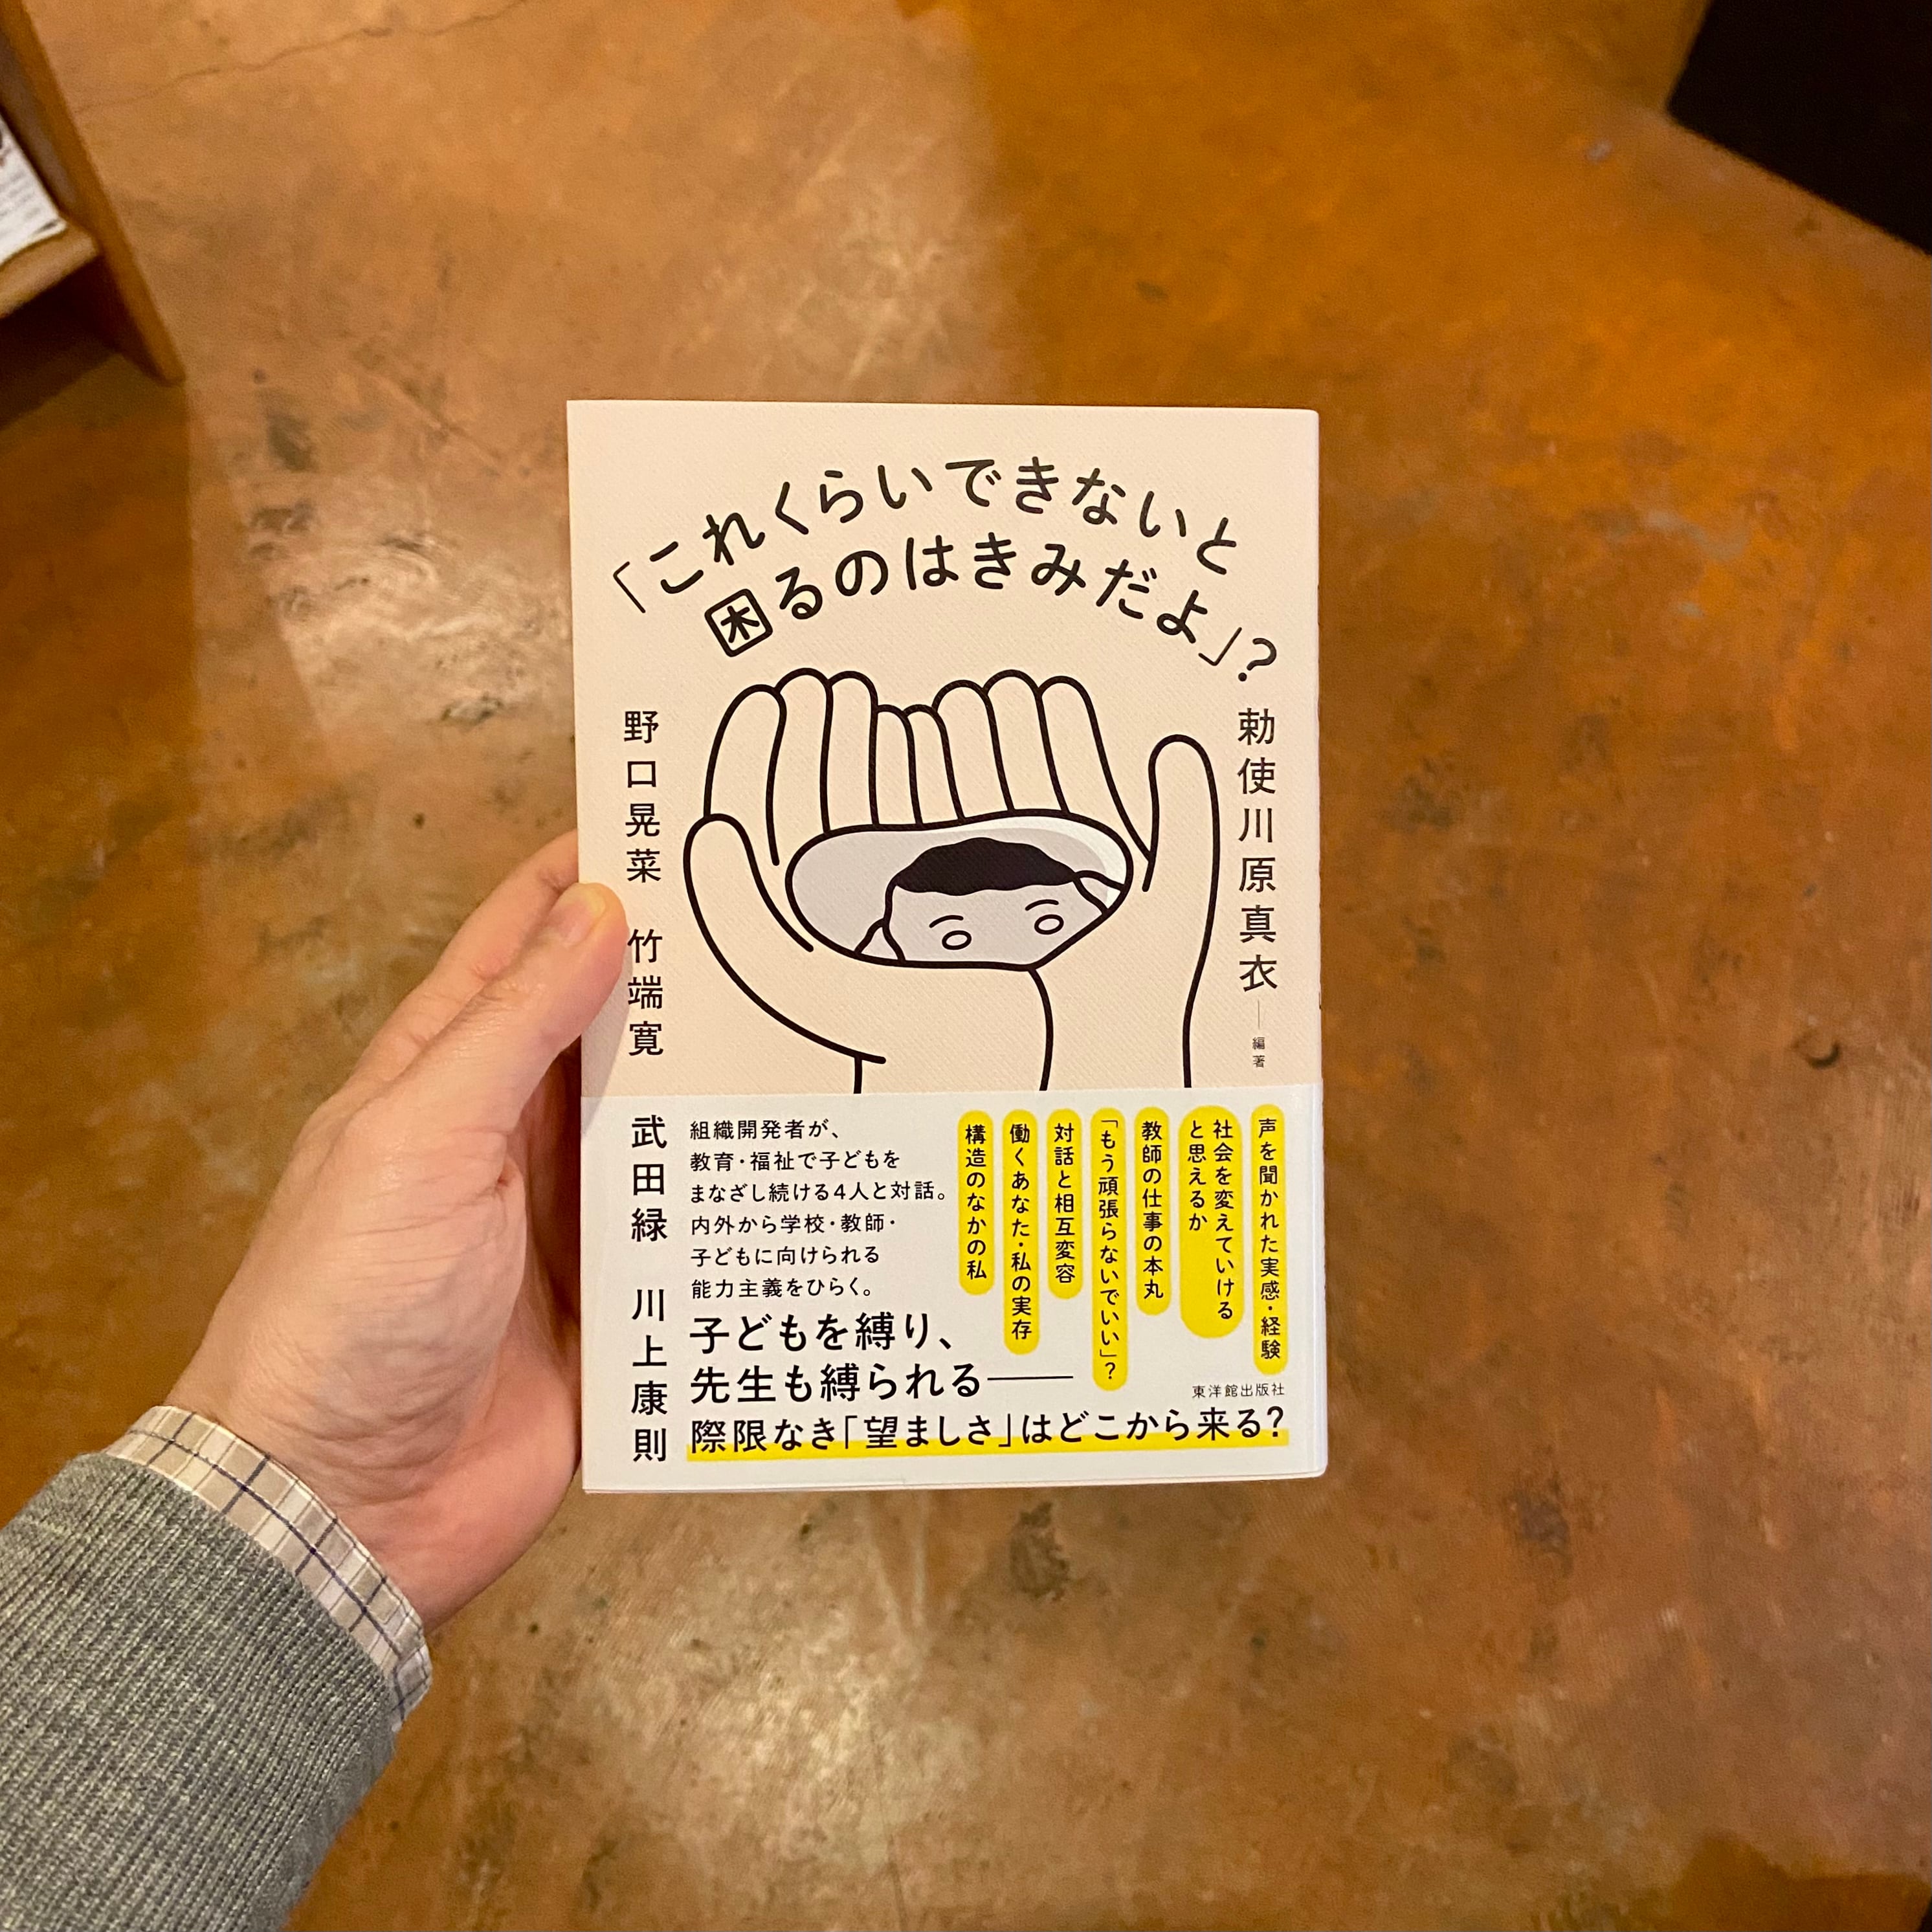 「これくらいできないと
困るのはきみだよ」?
勅使川原真衣
編著
野口晃菜 竹端寛
武田緑 川上康則
声を聞かれた実感・経験
社会を変えていける
と思えるか
教師の仕事の本丸
「もう頑張らないでいい」?
対話と相互変容
働くあなた・私の実存
構造のなかの私
組織開発者が、
教育・福祉で子どもを
まなざし続ける4人と対話。
内外から学校・教師・
子どもに向けられる
能力主義をひらく。
子どもを縛り、
先生も縛られる——
際限なき「望ましさ」はどこから来る?
東洋館出版社